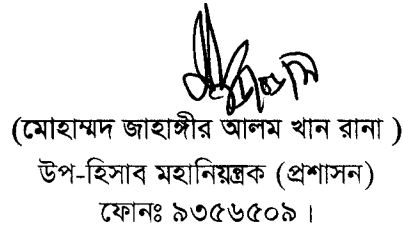 (মোহাম্মদ জাহাঙ্গীর আলম খান রানা )
উপ-হিসাব মহানিয়ন্ত্রক (প্রশাসন)
ফোনঃ ৯৩৫৬৫০৯ ।